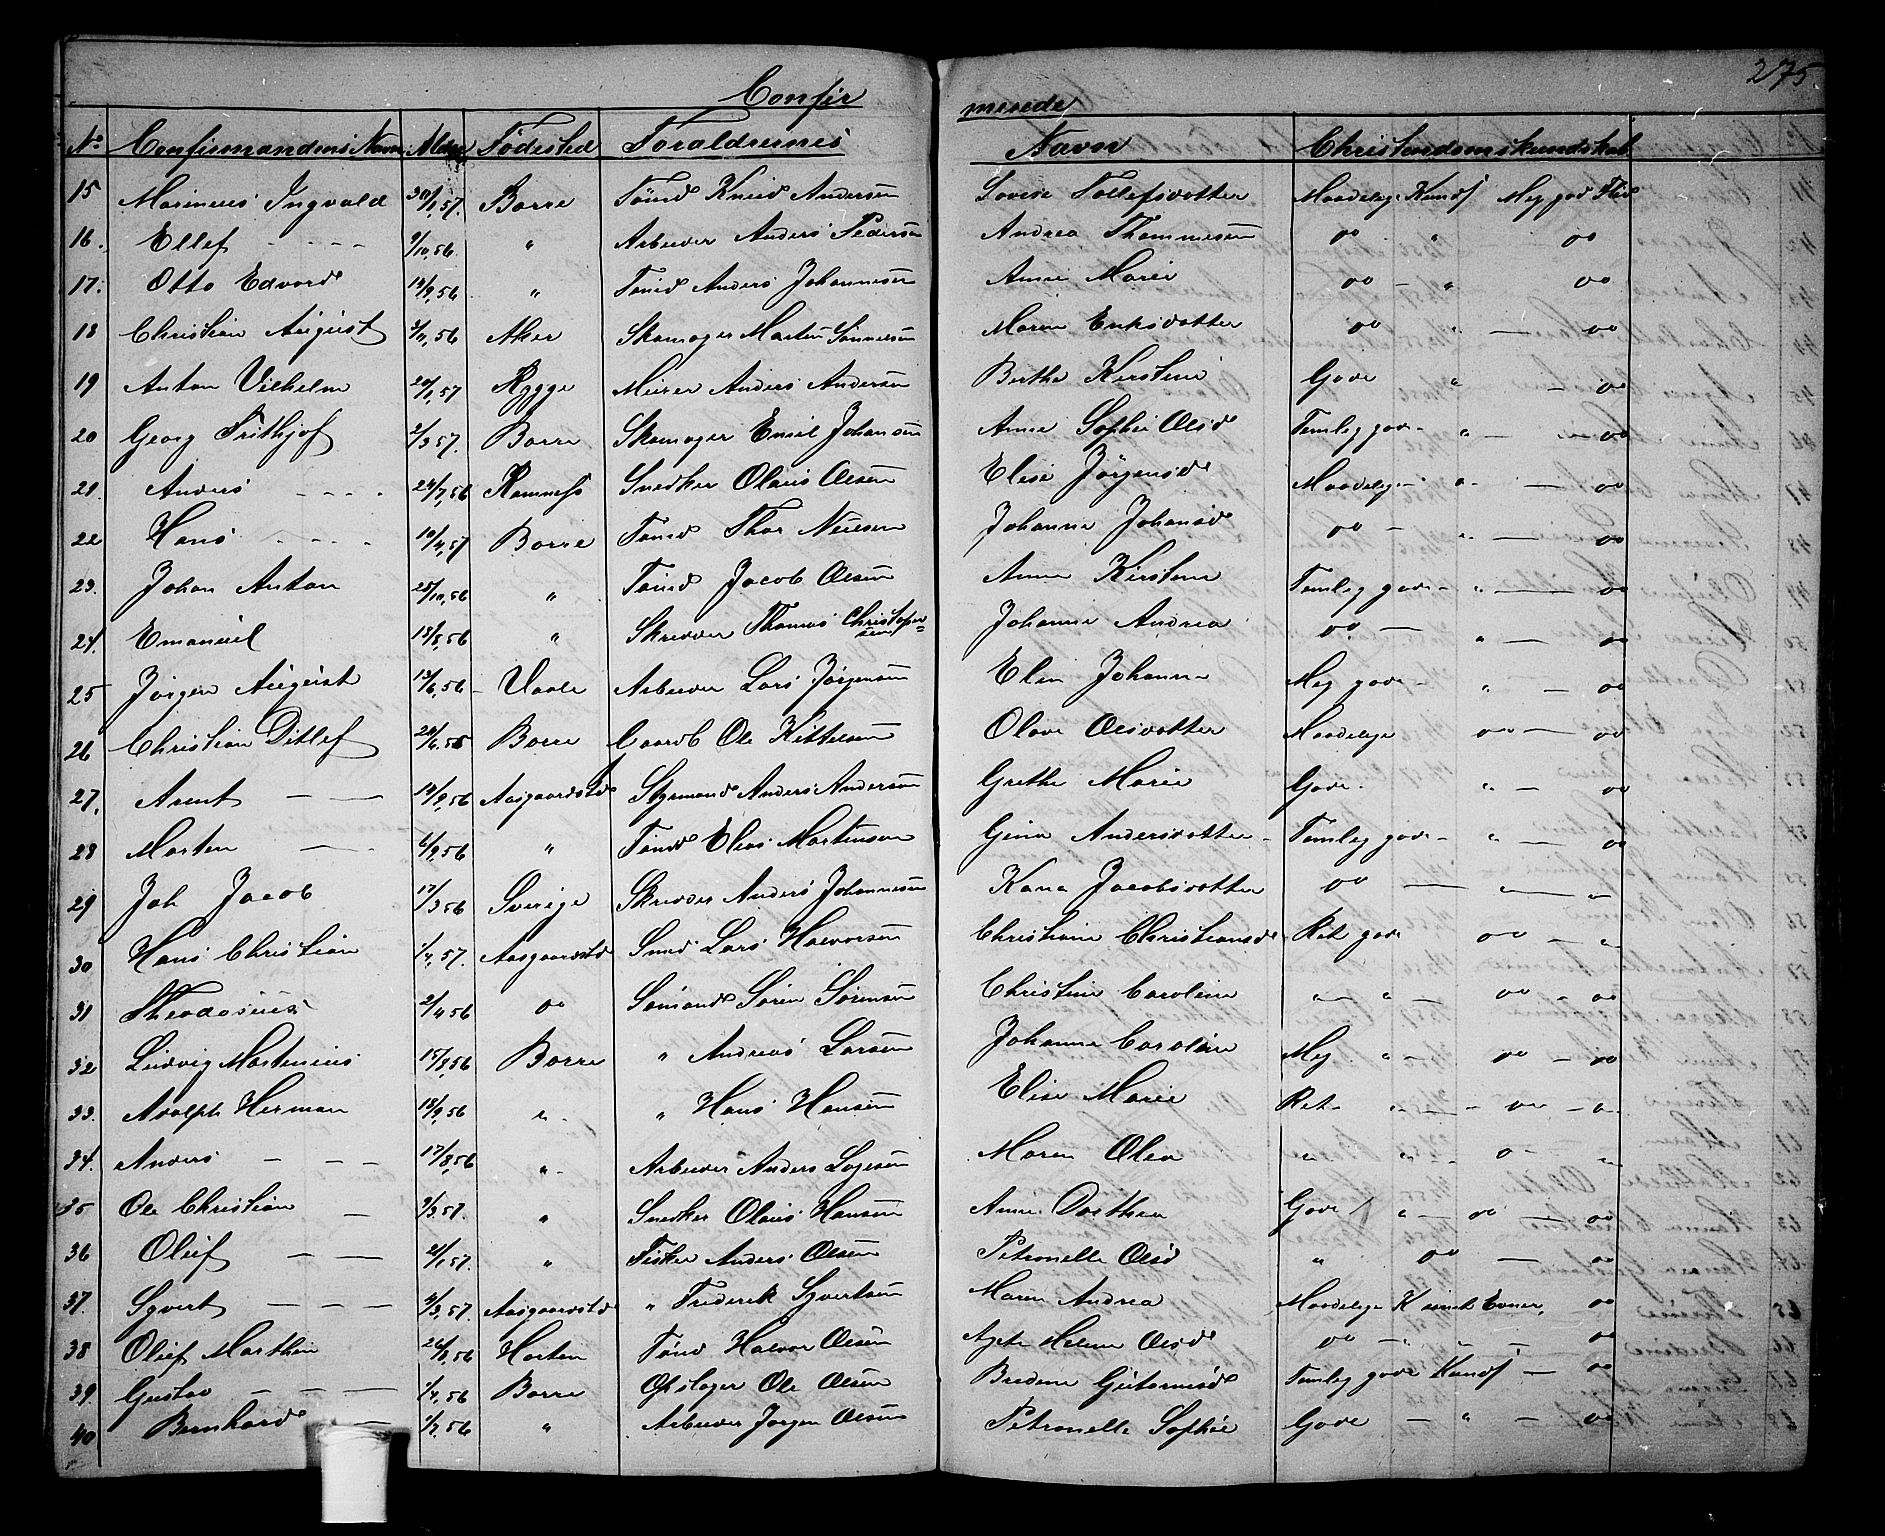 275
Confirmerede
No Confirmandens Navn Alder Fødested Forældrenes Navn Christendomskundskab
15 Marinius Ingvald 30/1,57. Borre Tømd Knud Andersen Lovise Tollefsdotter Maadelig Kundsk Meg god Flid
16. Ellef 9/10,56 " Arbeider Anders Pedersen Andrea Thommesen do " do
17. Otto Edvard 14/9,56 " Tømd Anders Johannesen Anne Marie do - " do
18 Christian August 3/11,56 Aker Skomager Morten Maren Eriksdotter do " - do
19 Anton Vilhelm 20/1,57 Rygge Murer Anders Andersen Berthe Kirstine Gode " - do
20 Georg Frithjof 2/3 57. Borre Skomager Emil Johansen Anne Sophie Olsd Temlig gode - " - do
21. Anders 24/7,56 Ramness Snedker Olaus Olsen Elise Jørgensd Maadelige - " - do
22 Hans 10/4,57 Borre Tømd Thor Nilsen Johanne Johansd do - " - do
23. Johan Anton 25/10,56 " Tømd Jacob Olsen Anne Kirstine Temlig gode - " - do
24. Emanuel 18/8,56 " Skredder Thomas Christofersen Johanne Andrea do - " - do
25 Jørgen August 13/6,56 - Vaale Arbeider Lars Jørgensen Elen Johanne Meg gode - " - do
26 Christian Ditlef 20/6,56 Borre Gaardb Ole Kittelsen Olave Olsdotter Maadelige do - do
27. Arent 14/9,56 Aasgaardstd Styrmand Anders Andersen Grethe Marie Gode. " - do
28 Morten 6/9,56 " Tømd Elias Mortensen Gina Andersdotter - Temlig gode - " - do
29 Joh Jacob 17/3 56 Sverige Skredder Anders Johannesen Kana Jacobsdotter do - " - "
30 Hans Christian 1/4,57. Aasgaardstd Smed Lars Halvorsen Christiane Christiansd Ret gode do - "
31 Theodosius 2/4 56 do Sømand Søren Sørensen Christine Caroline " - " - do - do
32 Ludvig Martinius 15/8,56 Borre " Andreas Larsen Johanne Caroline Meg " - do - do
33. Adolph Herman 18/9,56 " " Hans Hansen Elise Marie Ret - " - - do - do
34. Anders 17/8,56 " Arbeider Anders Maren Olea " " - do - "
35 Ole Christian 3/3,57. " Snedker Olaus Hansen Anne Dorthea Gode " - do - do
36 Oluf 21/1,57. " Fisker Anders Olsen Petronelle Olsd " do - do
37. Syvert 4/3,57. Aasgaardstd " Frederik Syvertsen Maren Andrea Maadelige K Evner, do
38 Oluf Marthin 26/8,56 Horten Tømd Halvor Olsen Helene Olsd do - " - do
39. Gustav 1/4,56 Borre Opslager Ole Olsen Bredine Gutormsd Temlig gode Kundsk - do
40 Bernhard 1/7,56 " Arbeider Jørgen Olsen Petronelle Sophie Gode - " - do